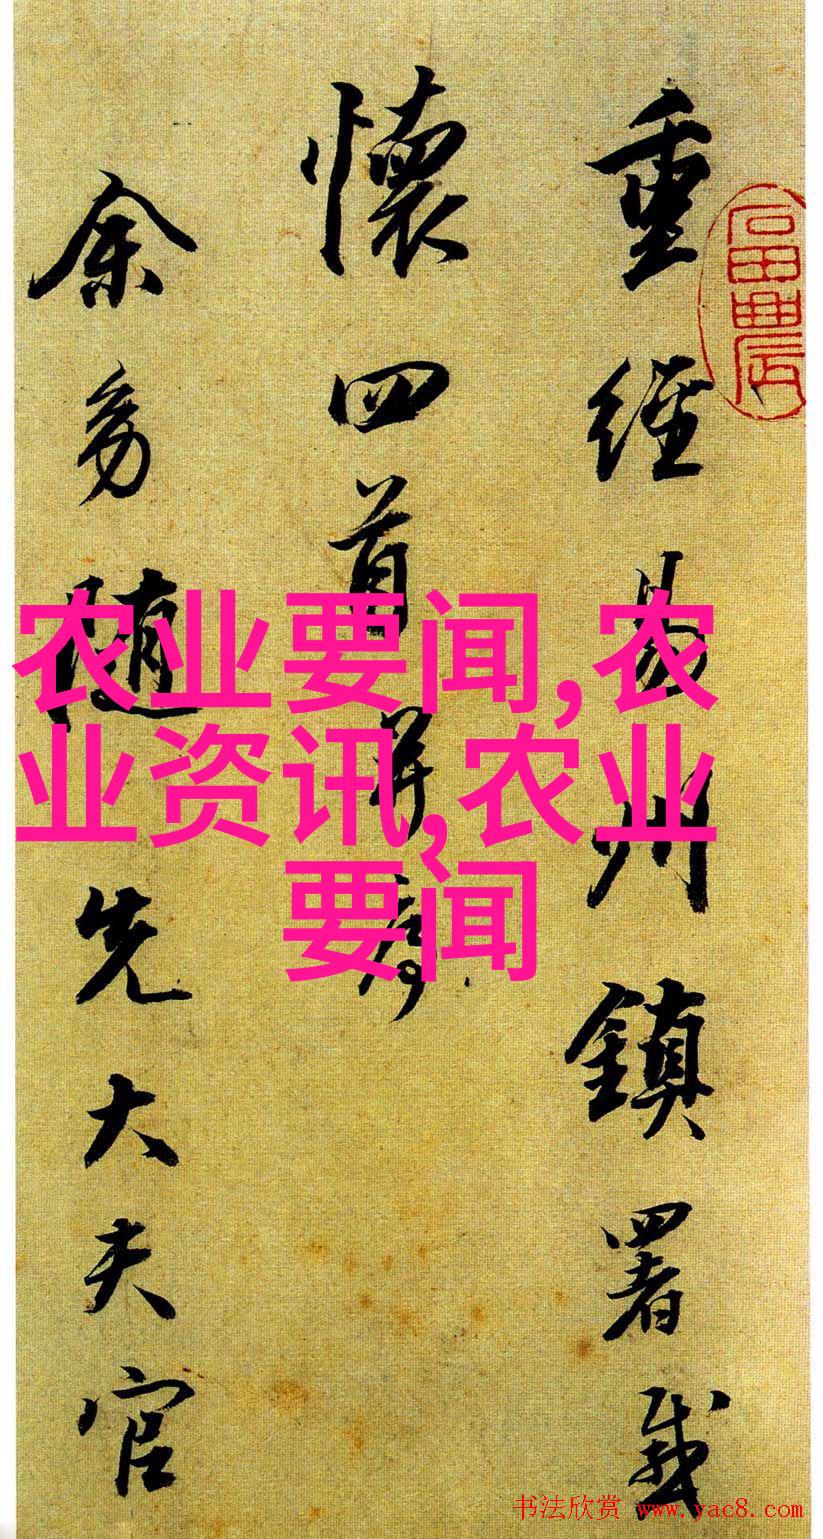 重經易州鎮署感
懷四首并序
余幼隨先大夫官
农业要闻,农
业资讯,农业
要闻
书法欣赏 www.yac8.com